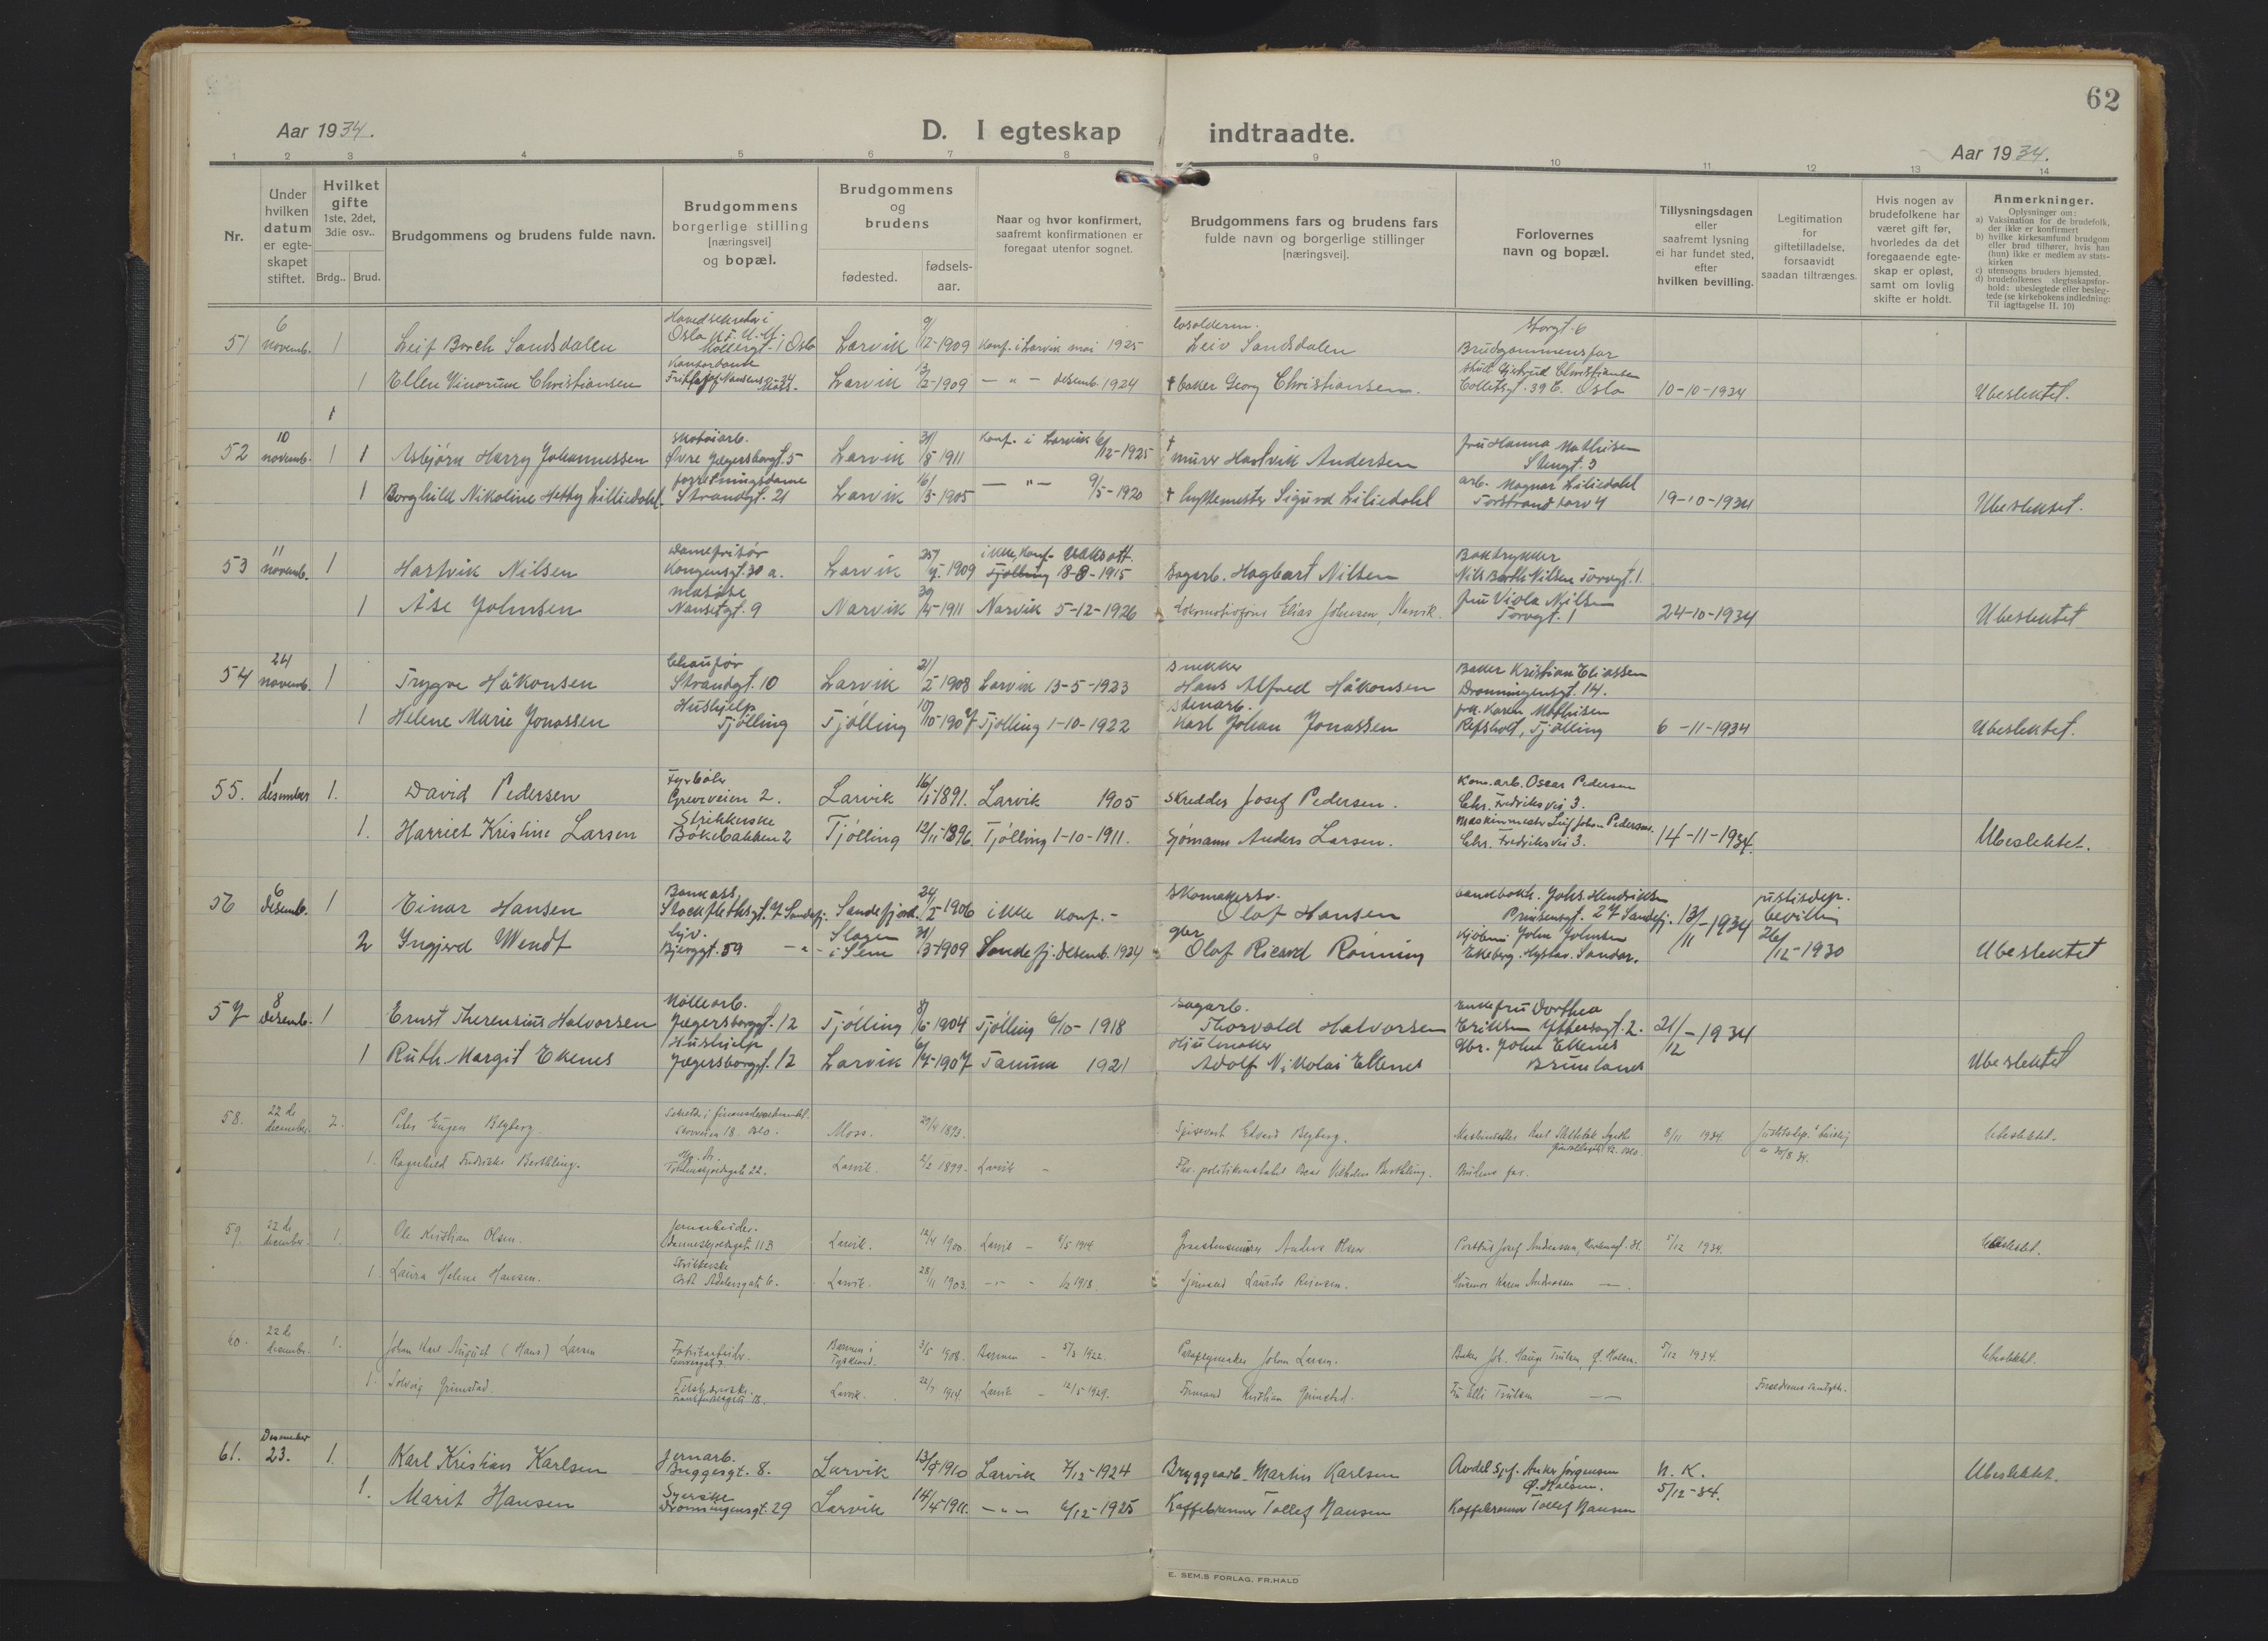 62
Aar 1934.
D. I egteskap indtraadte.
Aar 1934.
1 2 3 4 5 6 7 8 9 10 11 12 13 14
Nr.
Under hvilken datum er egteskapet stiftet.
Hvilket gifte 1ste, 2det, 3die osv..
Brdg.. Brud.
Brudgommens og brudens fulde navn.
Brudgommens borgerlige stilling [næringsvei] og bopæl.
Brudgommens og brudens
fødested. fødsels-aar.
Naar og hvor konfirmert, saafremt konfirmationen er foregaat utenfor sognet.
Brudgommens fars og brudens fars fulde navn og borgerlige stillinger [næringsvei].
Forlovernes navn og bopæl.
Tillysningsdagen eller saafremt lysning ei har fundet sted, efter hvilken bevilling.
Legitimation for giftetilladelse, forsaavidt saadan tiltrænges.
Hvis nogen av brudefolkene har været gift før, hvorledes da det foregaaende egteskap er opløst, samt om lovlig skifte er holdt.
Anmerkninger.
Oplysninger om:
a) Vaksination for de brudefolk, der ikke er konfirmert
b) hvilke kirkesamfund brudgom eller brud tilhører, hvis han (hun) ikke er medlem av stats-kirken
c) utensogns bruders hjemsted.
d) brudefolkenes slegtsskapsforhold: ubeslegtede eller beslegtede (se kirkebokens indledning: Til iagttagelse II. 10)
51 6 novemb. 1 Leif Borch Sandsdalen Oslo Larvik 9/12-1909 Konf. i Larvik mai 1925 Leiv Sandsdalen Storgt. 6 Brudgommens far
1 Ellen Vinorum Christiansen Kontordame Larvik 1909 — " — desemb. 1924 † baker Georg Christiansen Collettsgt. 39 Oslo 10-10-1934 Ubeslektet.
52 10 novemb. 1 Asbjørn Harry Johannessen Skotøiarb. Øvre Jegersborggt. 5 Larvik 31/8 1911 Konf. i Larvik 6/12-1925 † murer Hartvik Andersen fru Hanna Mathisen Stengt. 3
1 Borghild Nikoline Hetty Lilliedahl. forretningsdame Strandgt. 21 Larvik 6/3-1905 — " — 9/5-1920 † Sigurd Liliedahl arb. Magnar Liliedahl Torstrand torv 4 19-10-1934 Ubeslektet.
53 11 novemb. 1 Hartvik Nilsen Damefrisør Kongensgt. 30 a. Larvik 1909 ikke konf. Vaks.att. Tjølling 18-8-1915 Sagarb. Hagbart Nilsen Boktrykker Nils Nilsen Torvgt. 1.
1 Åse Johnsen Nansetgt. 9 Narvik 1911 Narvik 5-12-1926 Elias Johnsen, Narvik. fru Viola Nilsen Torvgt. 1 24-10-1934 Ubeslektet
54 24 novemb. 1 Trygve Håkonsen Chaufør Strandgt. 10 Larvik 21/2 1908 Larvik 13-5-1923 Snekker Hans Alfred Håkonsen Baker Kristian Eliassen Dronningensgt. 14.
1 Helene Marie Jonassen Hushjelp Tjølling Tjølling 10/10-1907 Tjølling 1-10-1922 Stenarb. Karl Johan Jonassen frk. Karen Mathisen Refsholt, Tjølling 6-11-1934 Ubeslektet.
55. 1 desember 1. David Pedersen Fyrbøter Greveveien 2. Larvik 1891. Larvik 1905 Skredder Josef Pedersen. Kom.arb. Oscar Pedersen Chr. Fredriksvei 3.
1. Harriet Kristine Larsen Strikkerske Bøkebakken 2 Tjølling 12/11-1896. Tjølling 1-10-1911. Sjømann Anders Larsen. Maskinmester Leif Johan Pedersen. Chr. Fredriksvei 3. 14-11-1934. Ubeslektet.
56 6 desemb. 1 Einar Hansen Bankass. Stockflethsgt. 7 Sandefj. Sandefjord. 24/2-1906 ikke konf.- Skomakersv. Olaf Hansen Johs. Hendriksen Prinsensgt. 27 Sandefj. 13/11-1934 justisdep. bevilling 26/12-1930
2 Ingjerd Wendt Bjerggt. 59 — " — Slagen i Sem 31/3-1909 Sandefj. desemb. 1924 gbr Olaf Ricard Rønning John Johnsen Ekeberg. Sandar. Ubeslektet
57 8 desemb. 1 Ernst Therensius Halvorsen Møllearb. Jegersborggt. 12 Tjølling 8/6-1904 Tjølling 6/10-1918 Sagarb. Thorvald Halvorsen Enkefru Dorthea Eriksen Yttersøgt. 2. 21/12-1934
1 Ruth Margit Ekenes Hushjelp Jegersborggt. 12 Larvik 1907 Tanum 1921 Hjulmaker Adolf Nikolai Ekenes Gbr. John Ekenes Brunlanes Ubeslektet
58. 22 de december. 2. Peter Eugen Blyberg. 18. Oslo. Moss. 29/4 1893. Edvard Blyberg. 8/11 1934. Ubeslektet.
1. Ragnhild Fredrikke Berthling. Tordenskjoldsgate 22. Larvik. 2/2 1899. Larvik - Brudens far.
59. 22 de december. 1. Ole Kristian Olsen. Jernarbeider. Danneskjoldsgate 11B Larvik. 12/4 1900. Larvik - 1914 Anders Olsen Josef Andreassen 5/12 1934. Ubeslektet.
1. Laura Helene Hansen. Strikkerske Cort Adelersgate 6. Larvik. 28/11 1903. - " - 1918. Sjømand Laurits Husmor Karen Andreassen —
60. 22 de december. 1. Johan Karl August (Hans) Larsen Fabrikarbeider. Barmen i Tyskland. 3/5 1908. Barmen - 1922. Paraplymaker Johan Larsen. Baker Joh. Hauge Trulsen 5/12 1934. Ubeslektet.
1. Solveig Grimstad. Larvik. 22/7 1914. Larvik - 12/5 1929. Formand Kristian Grimstad. Fru Elli Trulsen Foreldrenes samtykke.
61. Desember 23. 1. Karl Kristian Karlsen Jernarb. Bruggesgt. 8. Larvik 13/9 1910 Larvik 7/12-1924 Bryggearb. Martin Karlsen Avdel.sjef. Anker Jørgensen Ø. Halsen. N. K. 5/12-34. Ubeslektet.
1. Marit Hansen Syerske Dronningensgt. 29 Larvik 14/4-1911. — " — 6/12-1925 Kaffebrenner Tollef Hansen Kaffebrenner Tollef Hansen
E. SEM.S FORLAG, FR.HALD